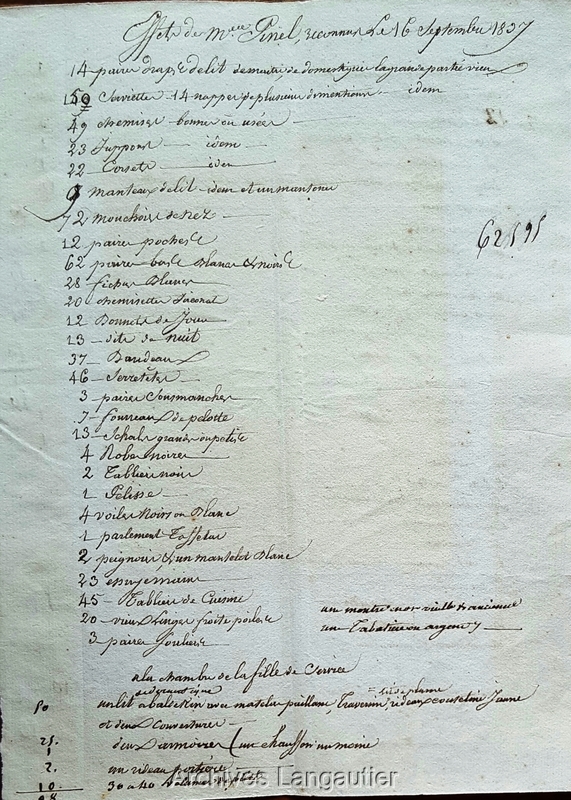 Effets de Mme Pinel, reconnus Le 16 Septembre 1837
14 paire draps de lit de maitre de domestique la grande partie vieux
150 Serviette 14 nappes de plusieurs dimentions idem
49 chemises bonnes ou usées
23 Juppons idem
22 Corsets idem
9 manteaux de lit idem et un
72 mouchoirs de nez
12 paires poches
62 paires bas Blancs & noirs
62595
28 fichus Blancs
20 chemisettes Jaconat
12 Bonnets de Jour
13 dits de nuit
37 Bandeaux
46 Serretêtes
3 paires Sousmanches
7 fourreaux de pelotte
13 Schals grands ou petits
4 Robes noires
2 Tabliers noir
1 Pélisse
4 voiles Noirs ou Blanc
1 parlement Taffetas
2 peignoirs & un mantelet Blanc
23 essuyemains
45 Tabliers de Cuisine
20 vieux linges frotte poiles
3 paires Souliers
un montre en or vielle & ancienne
une Tabatière en argent
a la chambre de la fille de Service
un lit a baldaquin avec matelas paillasse, Traversin, rideaux cousteline Jaune
lit de plume
50
et deux Couvertures
deux armoires (un chausson un moine
25.
1
un rideau portière
2.
30 a 40 volumes
10.
98
Archives Langautier